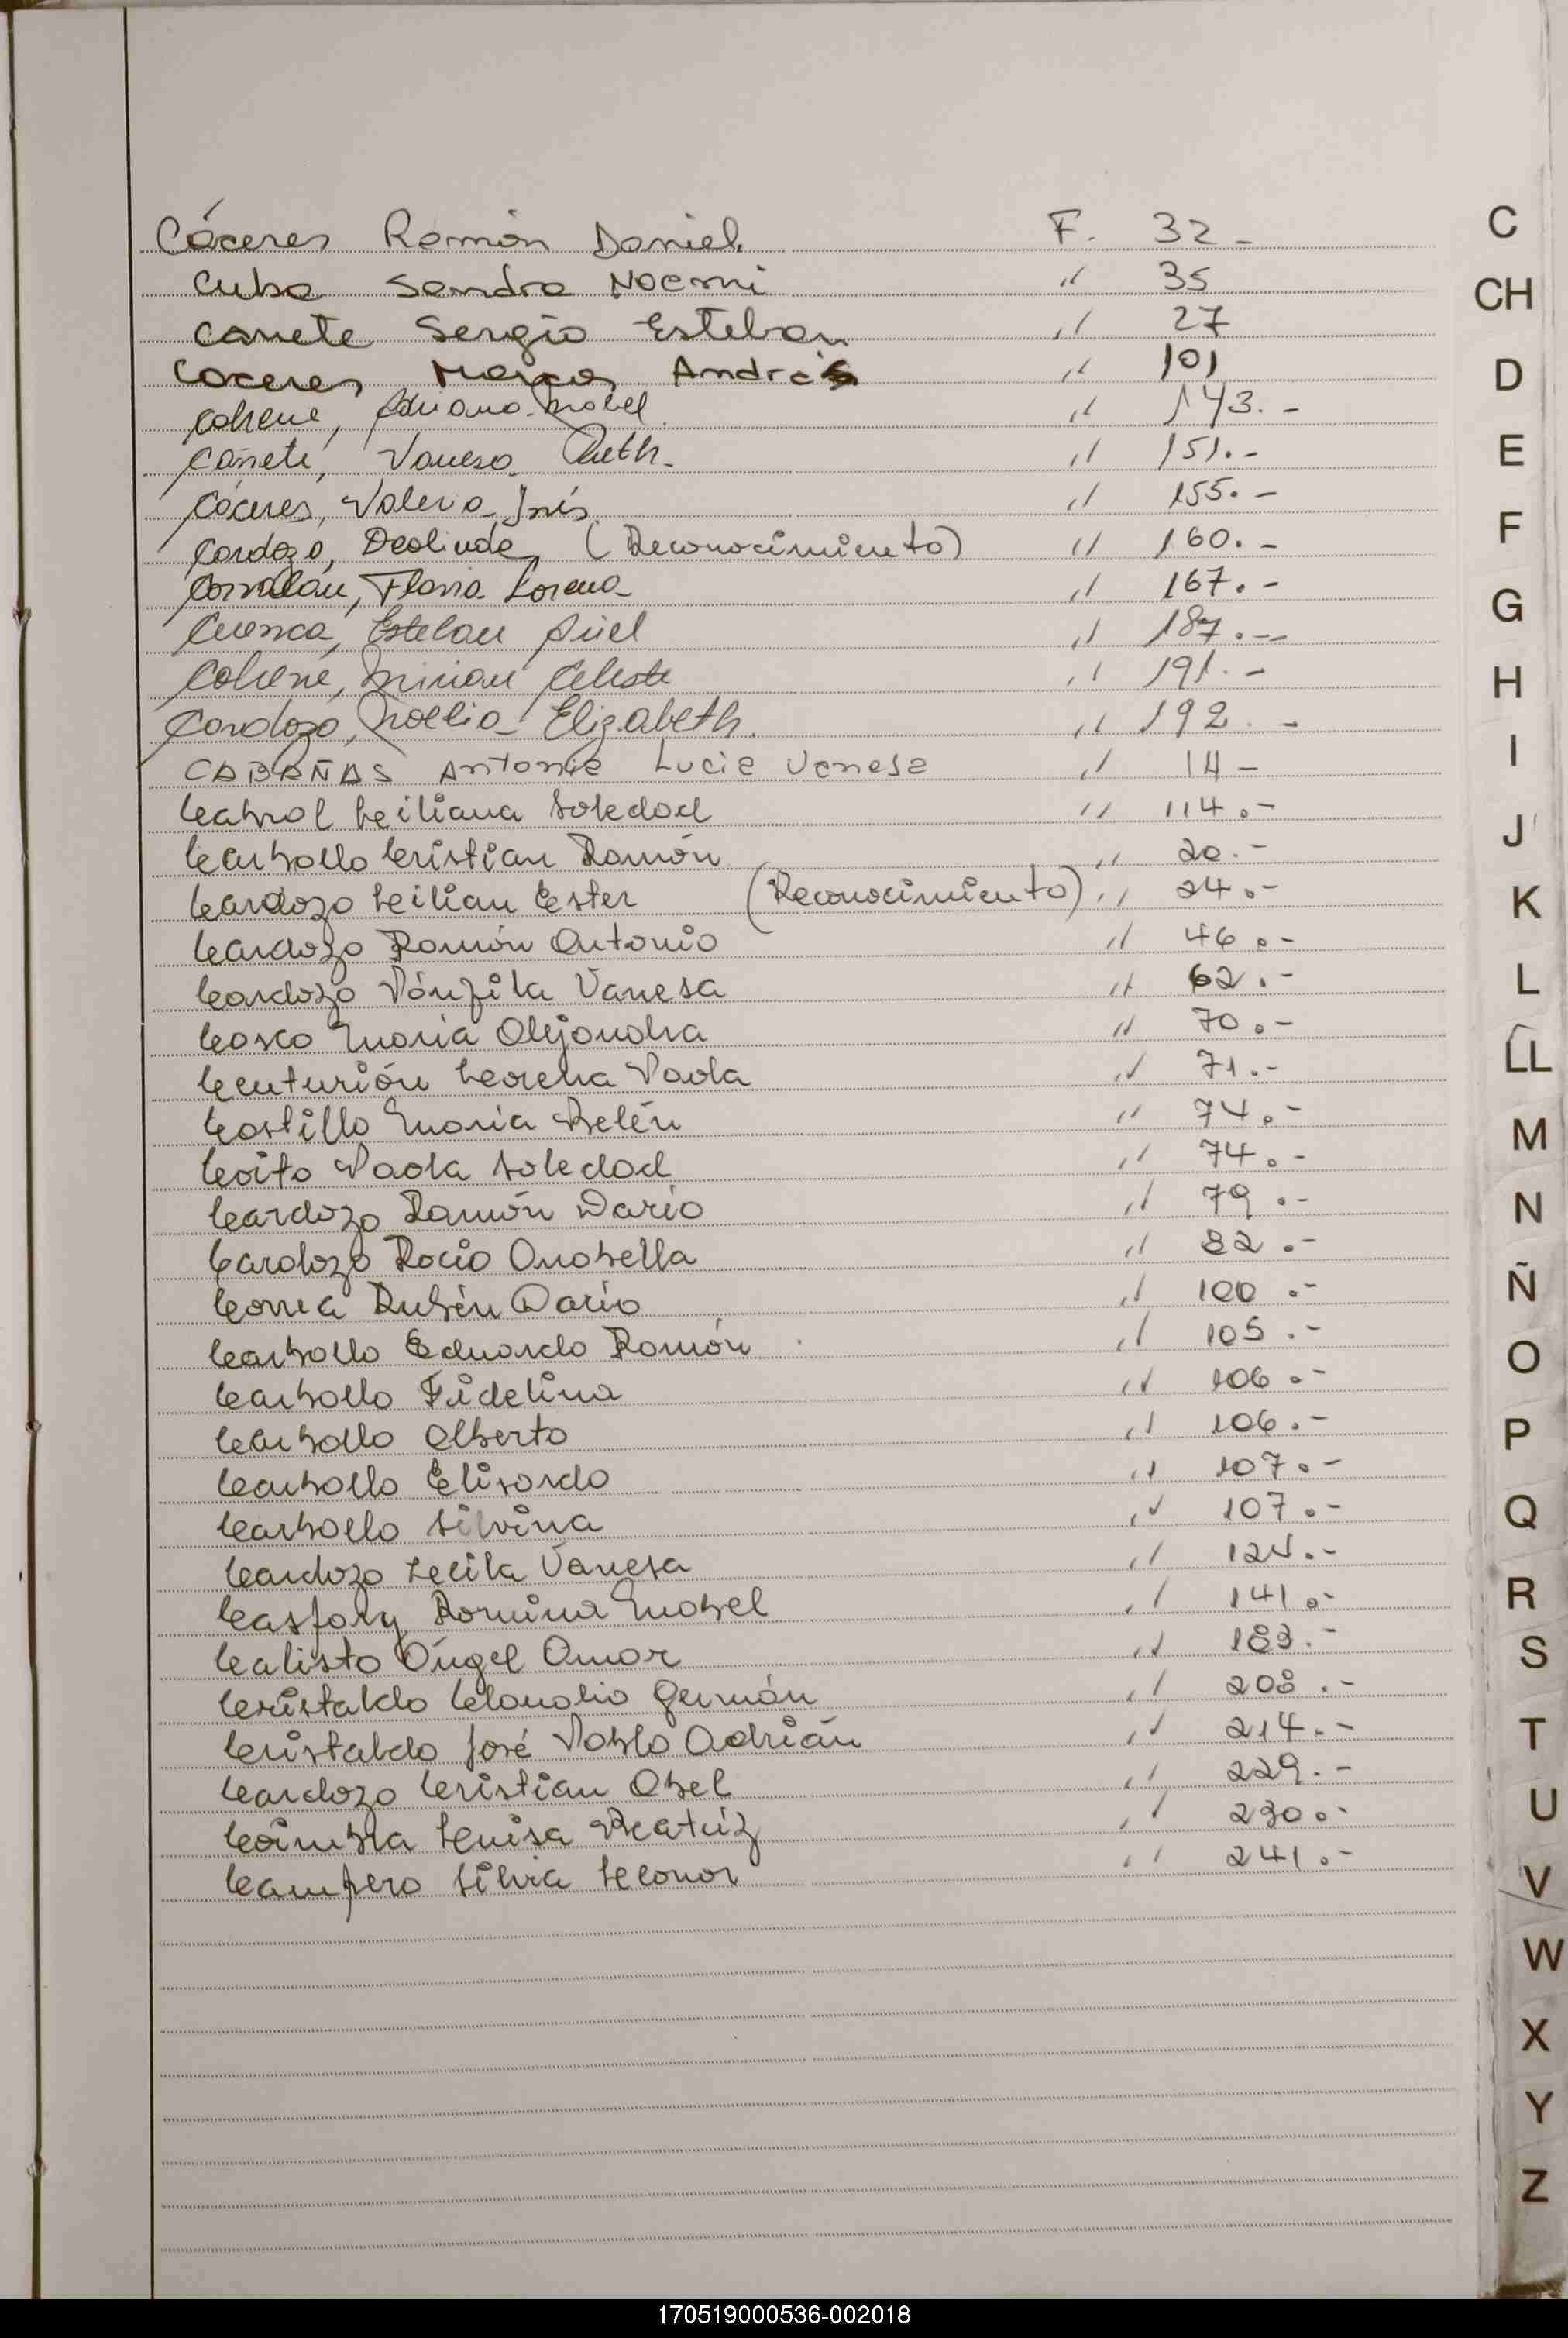 Cáceres Ramón Daniel. F. 32 -
Cuba Sandra Noemi " 35
Canete Sergio Esteban " 27
Caceres Marcos Andrés " 101
Cohene, Adriana Mabel. " 143. -
Cañete, Vanesa Ruth. " 151. -
Cáceres, Valeria Inés. " 155. -
Cardozo, Deolinda (Reconocimiento) " 160. -
Corvalán, Flavia Lorena " 167. -
Cuenca, Esteban Ariel " 187. --
Cohene, Mirian Celeste " 191. -
Cardozo, Noelia Elizabeth. " 192. -
CABAÑAS Antonia Lucia Vanesa " 14 -
Cabral Liliana Soledad " 114.-
Carballo Cristian Ramón " 20.-
Cardozo Lilian Ester (Reconocimiento) " 24.-
Cardozo Ramón Antonio " 46.-
Cardozo Vanesa " 62.-
Cosco María Alejandra " 70.-
Centurión Lorena Paola " 71.-
Castillo María Belén " 74.-
Coito Paola Soledad " 74.-
Cardozo Ramón Dario " 79.-
Cardozo Rocio Anabella " 82.-
Correa Rubén Dario " 100.-
Carballo Eduardo Ramón " 105.-
Carballo Fidelina " 106.-
Carballo Alberto " 106.-
Carballo Elisardo " 107.-
Carballo Silvina " 107.-
Cardozo Leila Vanesa " 124.-
Romina Mabel " 141.-
Calisto Ángel Omar " 183.-
Cristaldo Claudio Germán " 208.-
Cristaldo José Pablo Adrián " 214.-
Cardozo Cristian Abel " 229.-
Coimbra Luisa Beatriz " 230.-
Campero Silvia Leonor " 241.-
C
CH
D
E
F
G
H
I
J
K
L
LL
M
N
Ñ
O
P
Q
R
S
T
U
V
W
X
Y
Z
170519000536-002018